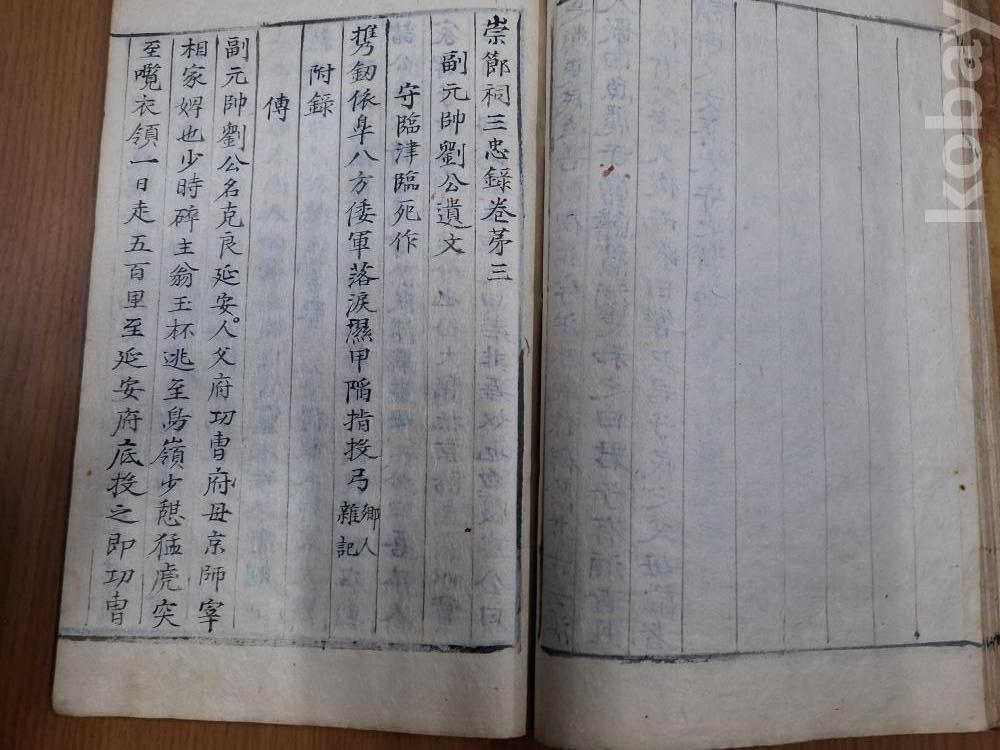 崇節祠三忠錄卷苐三
副元帥劉公遺文
守臨津臨死作
携劒依阜八方倭軍落淚㵝甲陷指投弓 鄉人雜記
附錄
傳
副元帥劉公名克良延安人父府功曺府母京師宰
相家婢也少時碎主翁玉杯逃至鳥嶺少憇猛虎突
至嚂衣領一日走五百里至延安府底投之即功曺
kobay